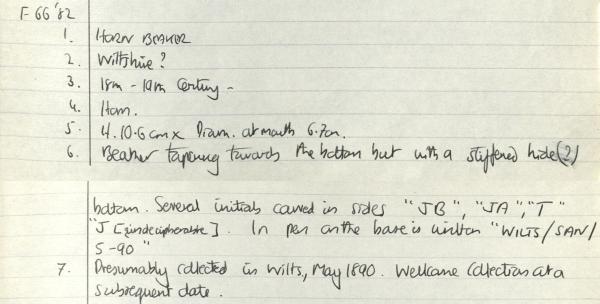 F 66 '82
1. HORN BEAKER
2. Wiltshire?
3. 18th - 19th Century -
4. Horn.
5. H. 10.6 cm x Diam. at mouth 6.7cm.
6. Beaker tapering towards the bottom but with a stiffened hide(?)
bottom. Several initials carved in sides "JB", "JA", "T"
"J [indecipherable]. In pen on the base is written "WILTS/SAN/
5-90"
7. Presumably collected in Wilts, May 1890. Wellcome Collection at a
subsequent date.